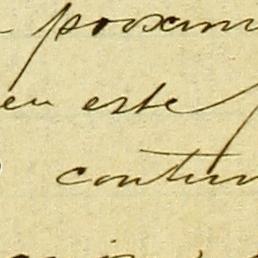 proxim
en este
contin